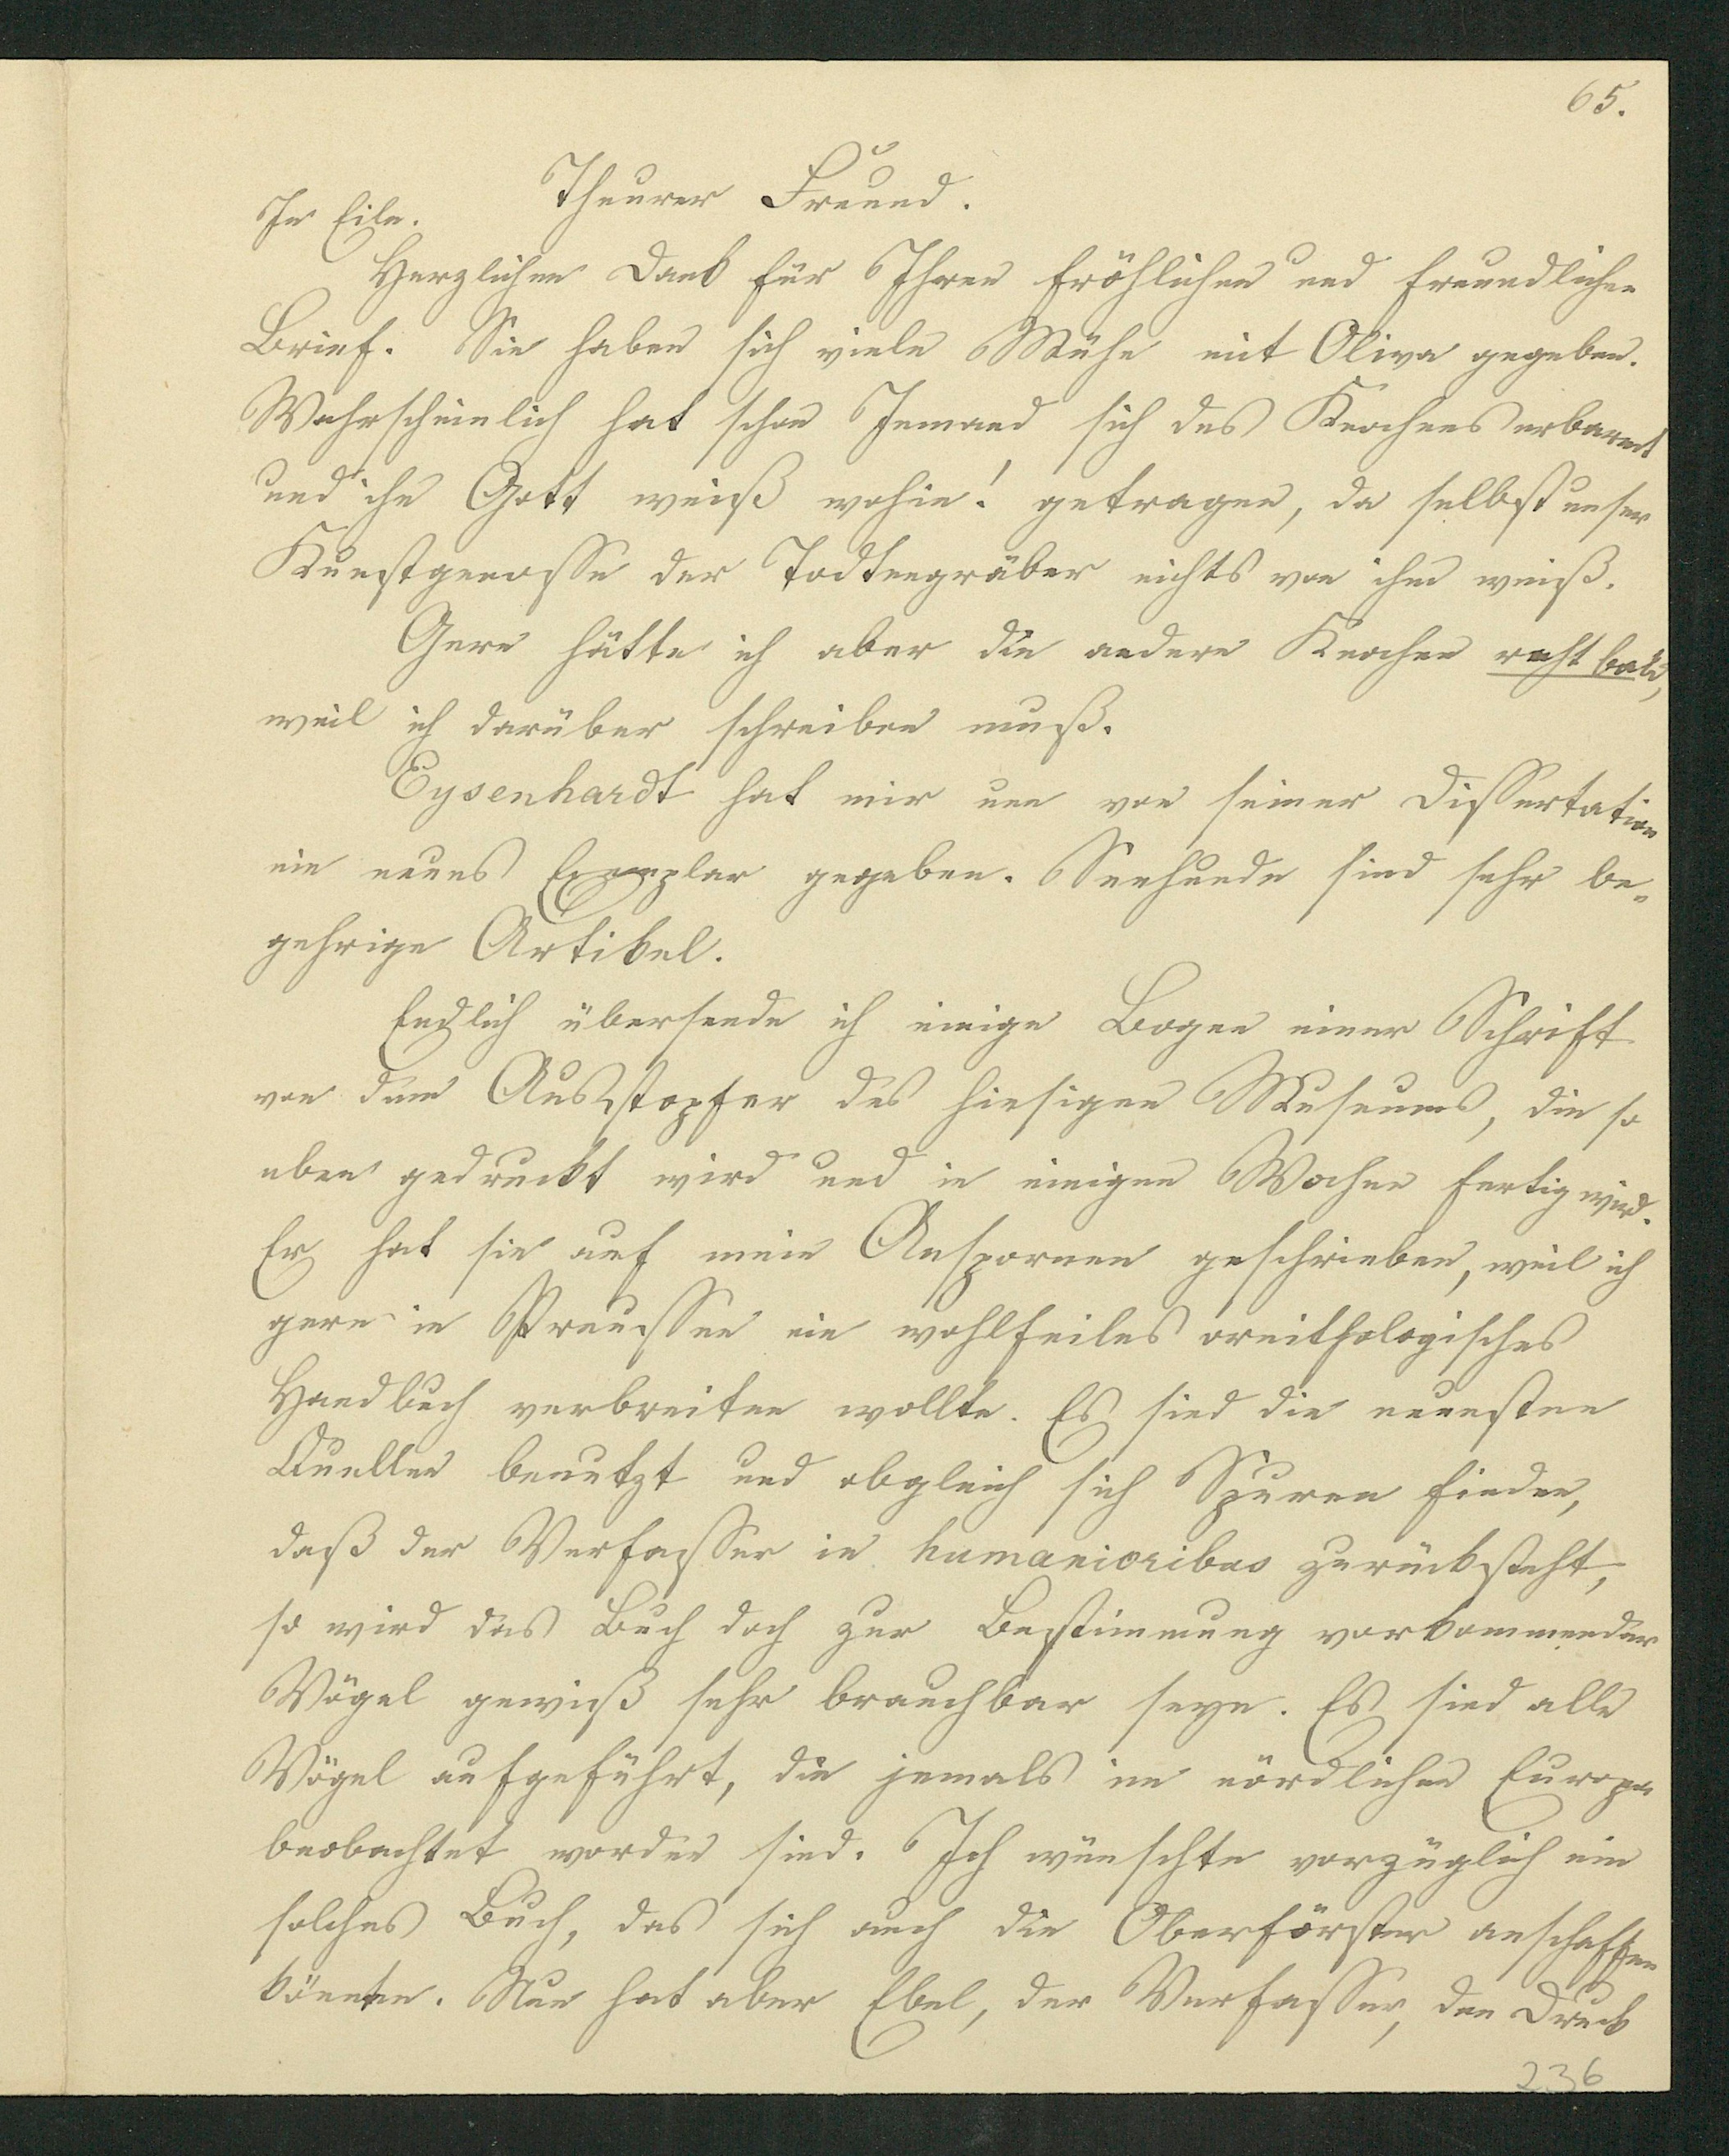 65.
Theurer Freund.
In Eile.
Herzlichen Dank für Ihren fröhlichen und freundlichen
Brief. Sie haben sich viele Mühe mit Oliva gegeben.
Wahrscheinlich hat schon Jemand sich des Knochens erbarmt
und ihn Gott weiß wohin! getragen, da selbst unser
Kunstgenosse der Todtengräber nichts von ihm weiß.
Gern hätte ich aber die andern Knochen recht bald,
weil ich darüber schreiben muß.
Eysenhardt hat mir nun von seiner Dissertation
ein neues Exemplar gegeben. Seehunde sind sehr be-
gehrige Artikel.
Endlich übersende ich einige Bogen einer Schrift
von dem Ausstopfer des hiesigen Museums, die so
eben gedruckt wird und in einigen Wochen fertig wird.
Er hat sie auf mein Anspornen geschrieben, weil ich
gern in Preussen ein wohlfeiles ornithologisches
Handbuch verbreiten wollte. Es sind die neuesten
Quellen benutzt und obgleich sich Spuren finden,
daß der Verfasser in humanioribus zurücksteht,
so wird das Buch doch zur Bestimmung vorkommender
Vögel gewiß sehr brauchbar seyn. Es sind alle
Vögel aufgeführt, die jemals im nördlichen Europa
beobachtet worden sind. Ich wünschte vorzüglich ein
solches Buch, das sich auch die Oberförster anschaffen
könnten. Nun hat aber Ebel, der Verfasser, den Druck
236